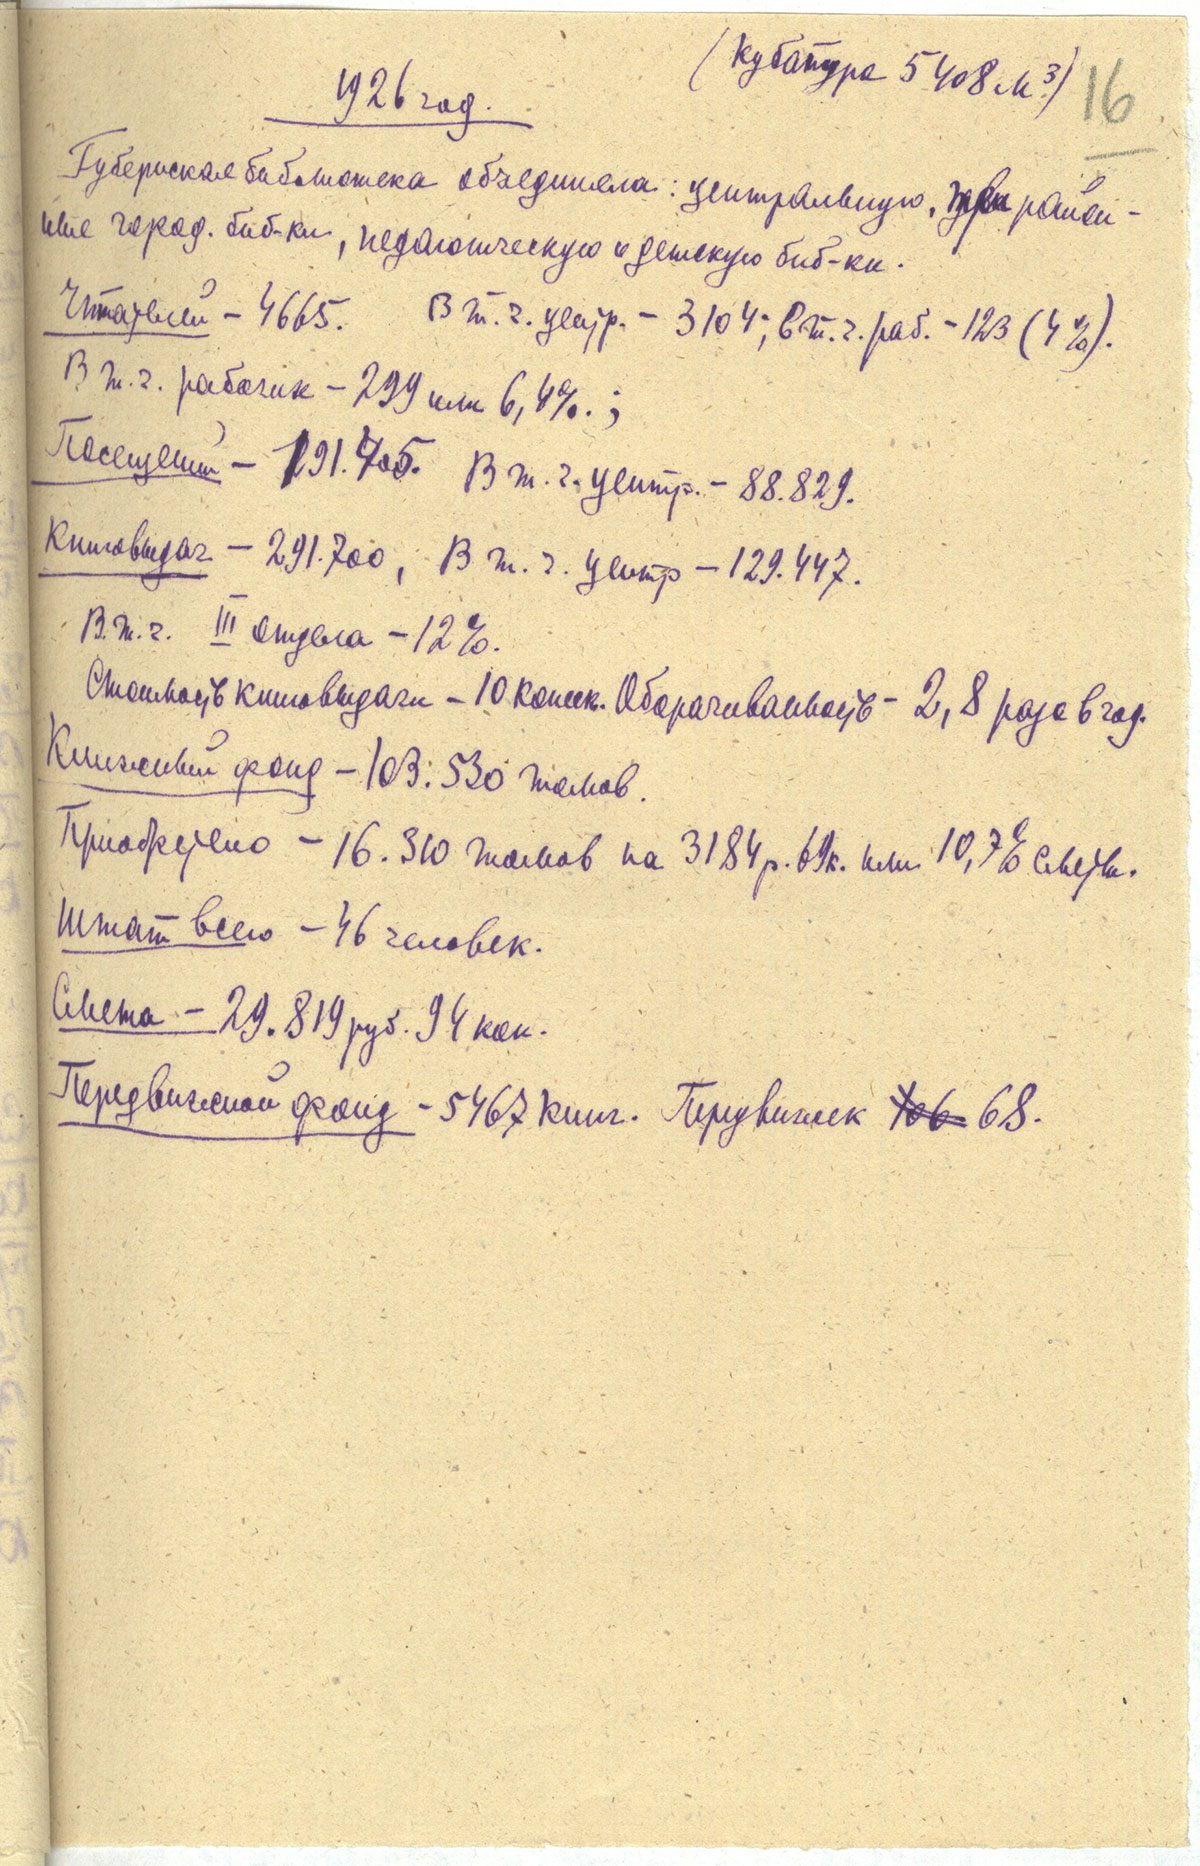 (кубатура 5408 м³) 16
1926 год.
Губернская библиотека объединяла: центральную, три район-
ные город. биб-ки, педагогическую и детскую биб-ки.
Читателей – 4665. В т.ч. центр. – 3104; в т.ч. раб. – 123 (4%).
В т.ч. рабочих – 299 или 6,4%.;
Посещений – 191.705. В т.ч. центр. – 88.829.
Книговыдач – 291.700, В т.ч. центр – 129.447.
В.т.ч. III отдела – 12%.
Стоимость книговыдачи – 10 копеек. Оборачиваемость – 2,8 раза в год.
Книжный фонд – 103.530 томов.
Приобретено – 16.310 томов на 3184 р. 69 к. или 10,7% сметы.
Штат всего – 46 человек.
Смета – 29.819 руб. 94 коп.
Передвижной фонд – 5467 книг. Передвижек 68.